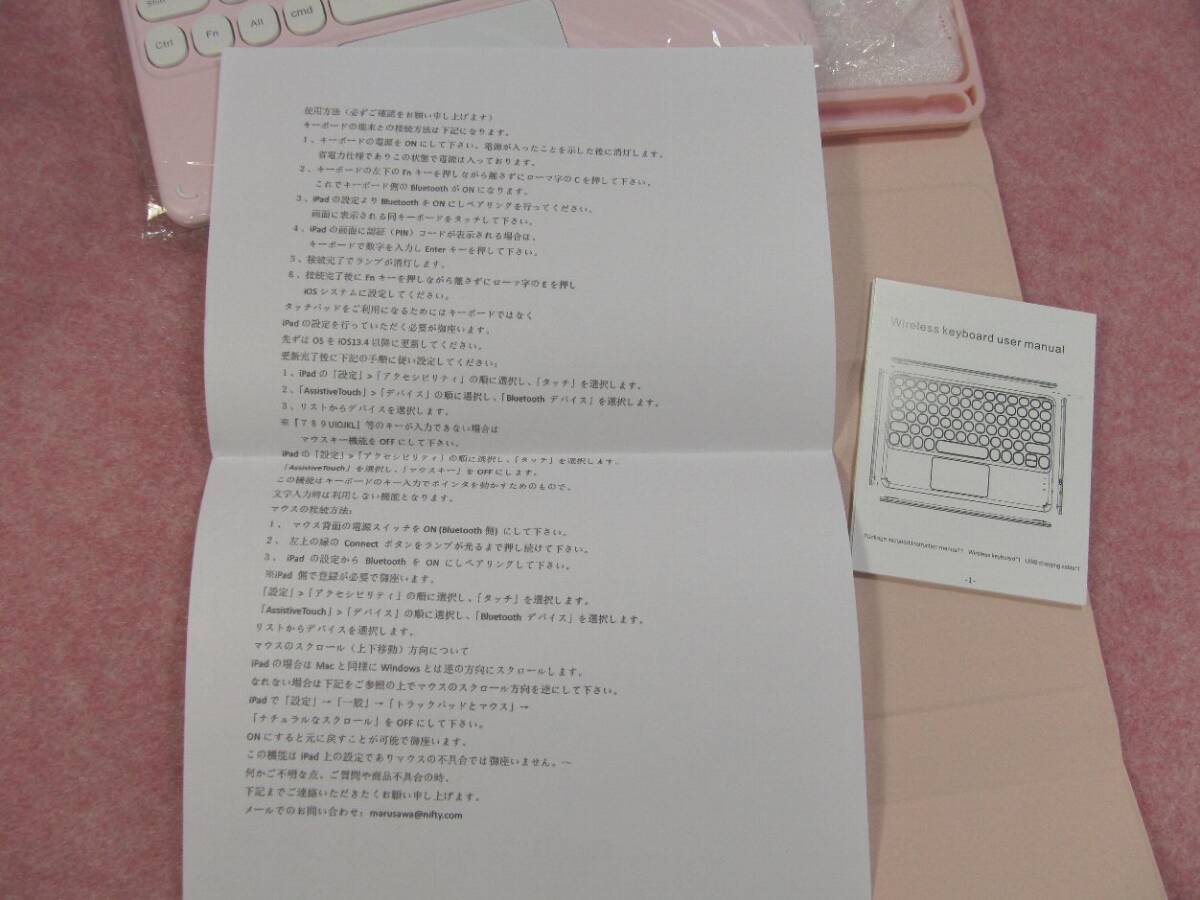 Shift
Ctrl
Fn
Alt
cmd
使用方法（必ずご確認をお願い申し上げます）
キーボードの端末との接続方法は下記になります。
1、キーボードの電源を ON にして下さい。電源が入ったことを示した後に消灯します。
省電力仕様でありこの状態で電源は入っております。
2、キーボードの左下の Fn キーを押しながら離さずにローマ字の C を押して下さい。
これでキーボード側の Bluetooth が ON になります。
3、iPad の設定より Bluetooth を ON にしペアリングを行ってください。
画面に表示される同キーボードをタッチして下さい。
4、iPad の画面に認証（PIN）コードが表示される場合は、
キーボードで数字を入力し Enter キーを押して下さい。
5、接続完了でランプが消灯します。
6、接続完了後に Fn キーを押しながら離さずにローマ字の E を押し
iOS システムに設定してください。
タッチパッドをご利用になるためにはキーボードではなく
iPad の設定を行っていただく必要が御座います。
先ずは OS を iOS13.4 以降に更新してください。
更新完了後に下記の手順に従い設定してください:
1、iPad の「設定」>「アクセシビリティ」の順に選択し、「タッチ」を選択します。
2、「AssistiveTouch」>「デバイス」の順に選択し、「Bluetooth デバイス」を選択します。
3、リストからデバイスを選択します。
※『７８９UIOJKL』等のキーが入力できない場合は
マウスキー機能を OFF にして下さい。
iPad の「設定」>「アクセシビリティ」の順に選択し、「タッチ」を選択します。
「AssistiveTouch」を選択し、「マウスキー」を OFF にします。
この機能はキーボードのキー入力でポインタを動かすためのもので、
文字入力時は利用しない機能となります。
マウスの接続方法:
1、 マウス背面の電源スイッチを ON (Bluetooth 側) にして下さい。
2、 左上の緑の Connect ボタンをランプが光るまで押し続けて下さい。
3、 iPad の設定から Bluetooth を ON にしペアリングして下さい。
※iPad 側で登録が必要で御座います。
「設定」>「アクセシビリティ」の順に選択し、「タッチ」を選択します。
「AssistiveTouch」>「デバイス」の順に選択し、「Bluetooth デバイス」を選択します。
リストからデバイスを選択します。
マウスのスクロール（上下移動）方向について
iPad の場合は Mac と同様に Windows とは逆の方向にスクロールします。
なれない場合は下記をご参照の上でマウスのスクロール方向を逆にして下さい。
iPad で「設定」→「一般」→「トラックパッドとマウス」→
「ナチュラルなスクロール」を OFF にして下さい。
ON にすると元に戻すことが可能で御座います。
この機能は iPad 上の設定でありマウスの不具合では御座いません。～
何かご不明な点、ご質問や商品不具合の時、
下記までご連絡いただきたくお願い申し上げます。
メールでのお問い合わせ: marusawa@nifty.com
Wireless keyboard user manual
Wireless keyboard*1
-1-